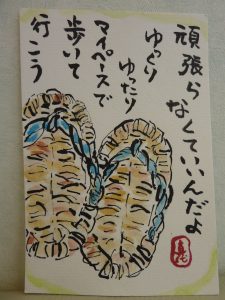 頑張らなくていいんだよ
ゆっくり
ゆったり
マイペースで
歩いて
行こう